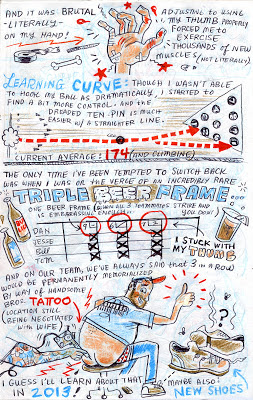 AND IT WAS BRUTAL
-LITERALLY-
ON MY HAND!
ADJUSTING TO USING
MY THUMB PROPERLY
FORCED ME TO
EXERCISE
THOUSANDS OF NEW
MUSCLES (NOT LITERALLY)
LEARNING CURVE: THOUGH I WASN'T ABLE
TO HOOK MY BALL AS DRAMATICALLY, I STARTED TO
FIND A BIT MORE CONTROL. AND THE
DREADED TEN-PIN IS MUCH
EASIER W/A STRAIGHTER LINE.
CURRENT AVERAGE: 174 (AND CLIMBING)
THE ONLY TIME I'VE BEEN TEMPTED TO SWITCH BACK
WAS WHEN I WAS ON THE VERGE OF AN INCREDIBLY RARE
TRIPLE BEER FRAME...
ONE BEER FRAME (WHEN ALL 3 TEAMMATES STRIKE AND YOU DON'T)
IS EMBARRASSING ENOUGH
DAN
JESSE
TOM
I STUCK WITH
MY THUMB
AND ON OUR TEAM, WE'VE ALWAYS SAID THAT 3 IN A ROW
WOULD BE PERMANENTLY MEMORIALIZED
BY WAY OF HANDSOME
BROS. TATTOO
(LOCATION STILL
BEING NEGOTIATED
WITH WIFE)
?
I GUESS I'LL LEARN ABOUT THAT
IN 2013!
MAYBE ALSO:
NEW SHOES